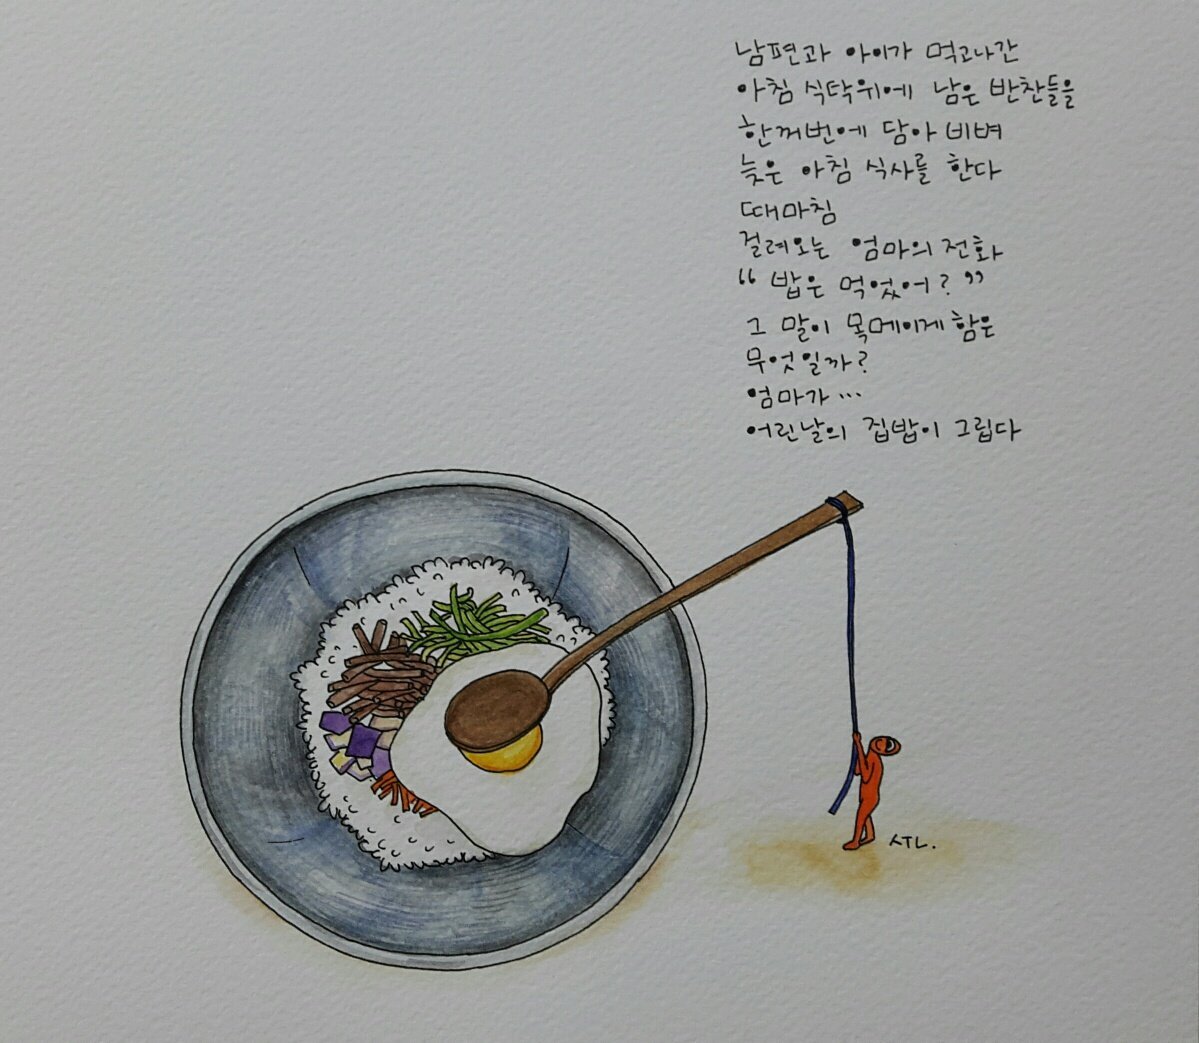 남편과 아이가 먹고나간
아침 식탁위에 남은 반찬들을
한꺼번에 담아 비벼
늦은 아침 식사를 한다
때마침
걸려오는 엄마의 전화
“ 밥은 먹었어? ”
그 말이 목메이게 함은
무엇일까?
엄마가 ...
어린날의 집밥이 그립다